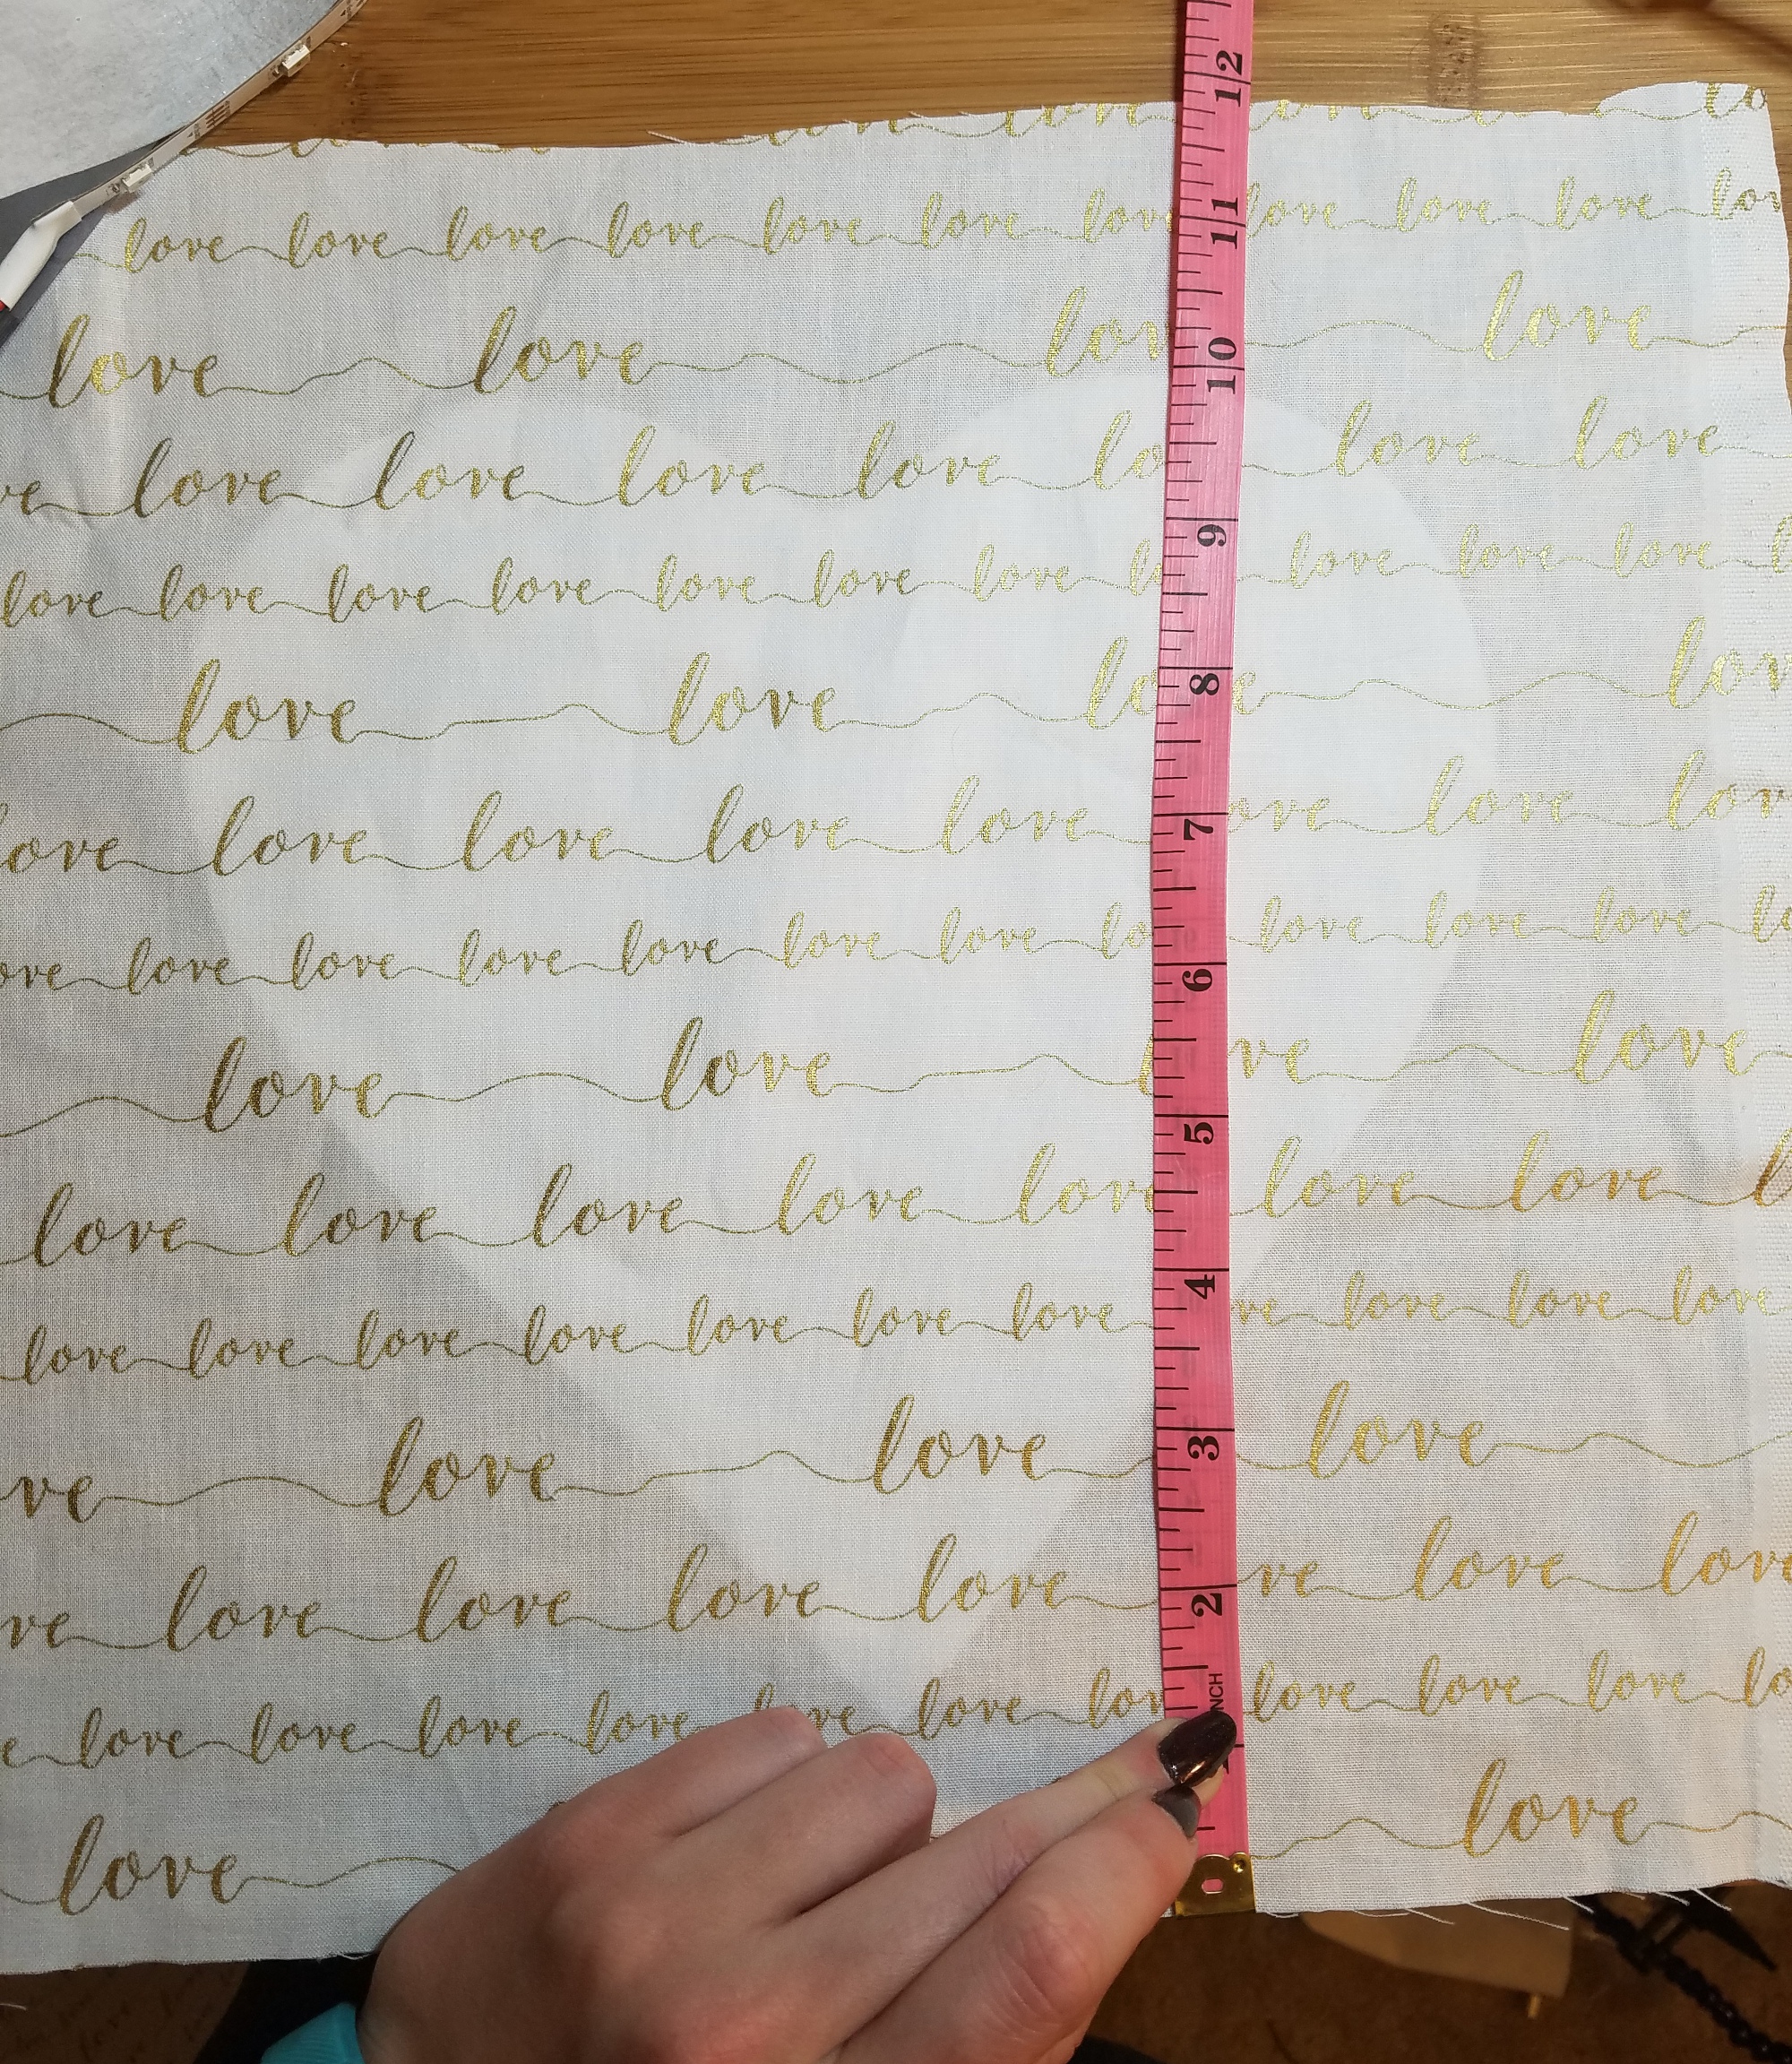 love love love love love love lov ove love love lov
love love lov love
ve love love love love lo love love
love love love love love love love l love love love
love love lo e lov
ove love love love love ove love lov
ove love love love love love love lo love love love l
love love l ve love
love love love love love love love l
love love love love love love love ve love love love
ve love love love
ve love love love love re love lov
e love love love love l ve love lov love love love lo
love love
12
11
10
9
8
7
6
5
4
3
2
NCH